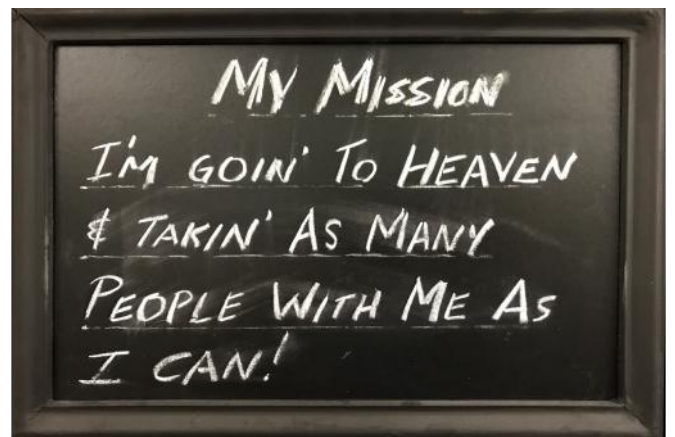 My Mission
I'm goin' To Heaven
& Takin' As Many
People With Me As
I can!